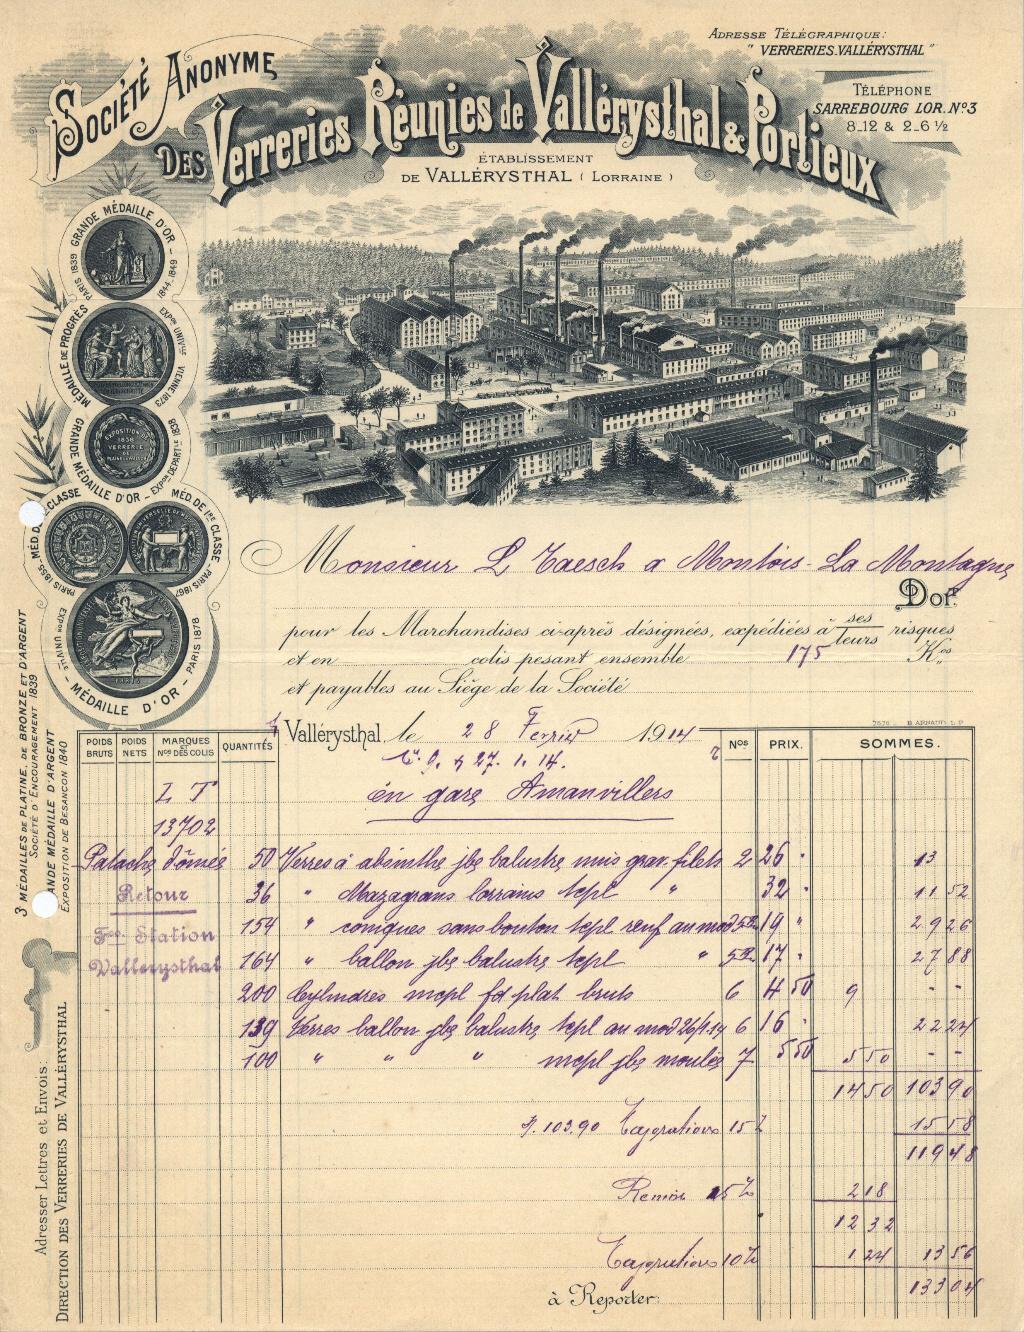 ADRESSE TÉLÉGRAPHIQUE:
" VERRERIES.VALLÉRYSTHAL "
TÉLÉPHONE
SARREBOURG LOR. Nº3
8_12 & 2_6 ½
SOCIÉTÉ ANONYME
DES Verreries Réunies de Vallérysthal & Portieux
ÉTABLISSEMENT
DE VALLÉRYSTHAL ( LORRAINE )
GRANDE MÉDAILLE D'OR
PARIS 1839 1844.1849
MÉDAILLE DE PROGRÈS
EXPon UNIVlle VIENNE 1873
EXPOSITION DE
1838
VERRERIE
DE
GRANDE MÉDAILLE D'OR
EXPon DEPARTle 1838
CLASSE
PARIS 1855
MÉD. DE 1re CLASSE
PARIS 1867
EXPon UNIVlle
PARIS 1878
MÉDAILLE D'OR
3 MÉDAILLES DE PLATINE, DE BRONZE ET D'ARGENT
SOCIÉTÉ D'ENCOURAGEMENT 1839
ANDE MÉDAILLE D'ARGENT
EXPOSITION DE BESANCON 1840
Adresser Lettres et Envois:
DIRECTION DES VERRERIES DE VALLÉRYSTHAL
Monsieur L Taesch a Montois-La Montagne
Doit
pour les Marchandises ci-après désignées, expédiées à ses/leurs risques
et en colis pesant ensemble 175 Kos
et payables au Siège de la Société
7676 B. ARNAUD. L. P.
Vallérysthal, le 28 Fevrier 1914
POIDS BRUTS POIDS NETS MARQUES ET Nos DES COLIS QUANTITÉS Nos PRIX. SOMMES.
27. 1. 14.
L T en gare Amanvillers
13702
Patache dômée 50 Verres à absinthe jbe balustre unis grav. filets 2 26 " 13
Retour 36 " Mazagrans lorrains tepl " 32 " 11 52
Fco Station 154 " coniques sans bouton tepl renf au mod 19 " 29 26
Vallerysthal 164 " ballon jbe balustre tepl " 17 " 27 88
200 Cylindres mepl fd plat bruts 6 4 50 9 - -
139 Verres ballon jbe balustre tepl au mod 26/1.14 6 16 " 22 24
100 " " " mepl jbe moulée 7 5 50 5 50 - -
14 50 103 90
103.90 Majorations 15% 15 58
119 48
Remise 15% 2 18
12 32
Majorations 10% 1 24 13 56
133 04
à Reporter: